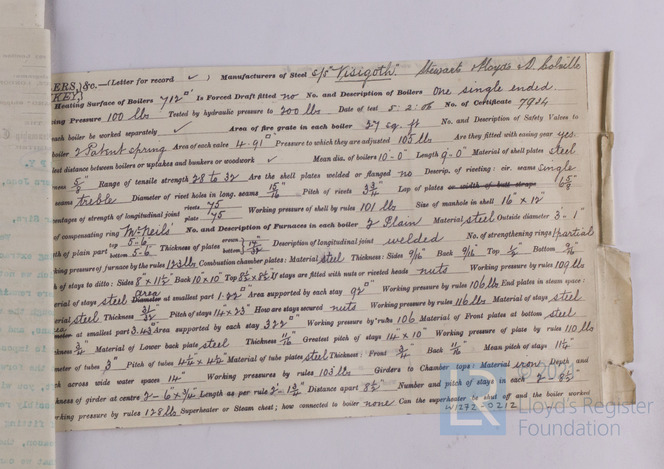 ERS, &c.—(Letter for record ✓ ) Manufacturers of Steel S/S "Visigoth". Stewarts & Lloyds D. Colville
KEY,)
Heating Surface of Boilers 712□' Is Forced Draft fitted no No. and Description of Boilers One single ended.
king Pressure 100 lbs Tested by hydraulic pressure to 200 lbs Date of test 5: 2: 06 No. of Certificate 7904
each boiler be worked separately ✓ Area of fire grate in each boiler 37 sq. ft No. and Description of Safety Valves to
boiler 2 Patent spring Area of each valve 4.91□" Pressure to which they are adjusted 105 lbs Are they fitted with easing gear yes.
lest distance between boilers or uptakes and bunkers or woodwork ✓ Mean dia. of boilers 10-0" Length 9-0" Material of shell plates steel
ness 5/8" Range of tensile strength 28 to 32 Are the shell plates welded or flanged no Descrip. of riveting: cir. seams single
seams treble Diameter of rivet holes in long. seams 15/16" Pitch of rivets 3 3/4" Lap of plates or width of butt straps
entages of strength of longitudinal joint rivets 75 plate 75 Working pressure of shell by rules 101 lbs Size of manhole in shell 16" x 12"
of compensating ring McNeils' No. and Description of Furnaces in each boiler 2 Plain Material steel Outside diameter 3-1"
th of plain part top 5-6" bottom 5-6" Thickness of plates crown bottom Description of longitudinal joint welded No. of strengthening rings 1 partial
king pressure of furnace by the rules 123 lbs Combustion chamber plates: Material steel Thickness: Sides 9/16" Back 9/16" Top 1/2" Bottom 9/16"
h of stays to ditto: Sides 8" x 11 1/2" Back 10" x 10" Top 8 1/2" x 8 1/2" If stays are fitted with nuts or riveted heads nuts Working pressure by rules 109 lbs
erial of stays steel Diameter area at smallest part 1.22□" Area supported by each stay 92□" Working pressure by rules 106 lbs End plates in steam space:
erial steel Thickness 31/32" Pitch of stays 14" x 23" How are stays secured nuts Working pressure by rules 116 lbs Material of stays steel
meter at smallest part 3.43 Area supported by each stay 322□" Working pressure by rules 106 Material of Front plates at bottom steel
kness 3/4" Material of Lower back plate steel Thickness 11/16" Greatest pitch of stays 14" x 10" Working pressure of plate by rules 110 lbs
meter of tubes 3" Pitch of tubes 4 1/4" x 4 1/2" Material of tube plates steel Thickness: Front 3/4" Back 11/16" Mean pitch of stays 11 1/4"
ch across wide water spaces 14" Working pressures by rules 103 lbs Girders to Chamber tops: Material iron Depth and
kness of girder at centre 2-6" x 3/4" Length as per rule 2'-1 3/4" Distance apart 8 1/2" Number and pitch of stays in each 2-8 1/2"
rking pressure by rules 128 lbs Superheater or Steam chest; how connected to boiler none Can the superheater be shut off and the boiler worked
W1272-0212
LR
© 20
Lloyd's Register
Foundation